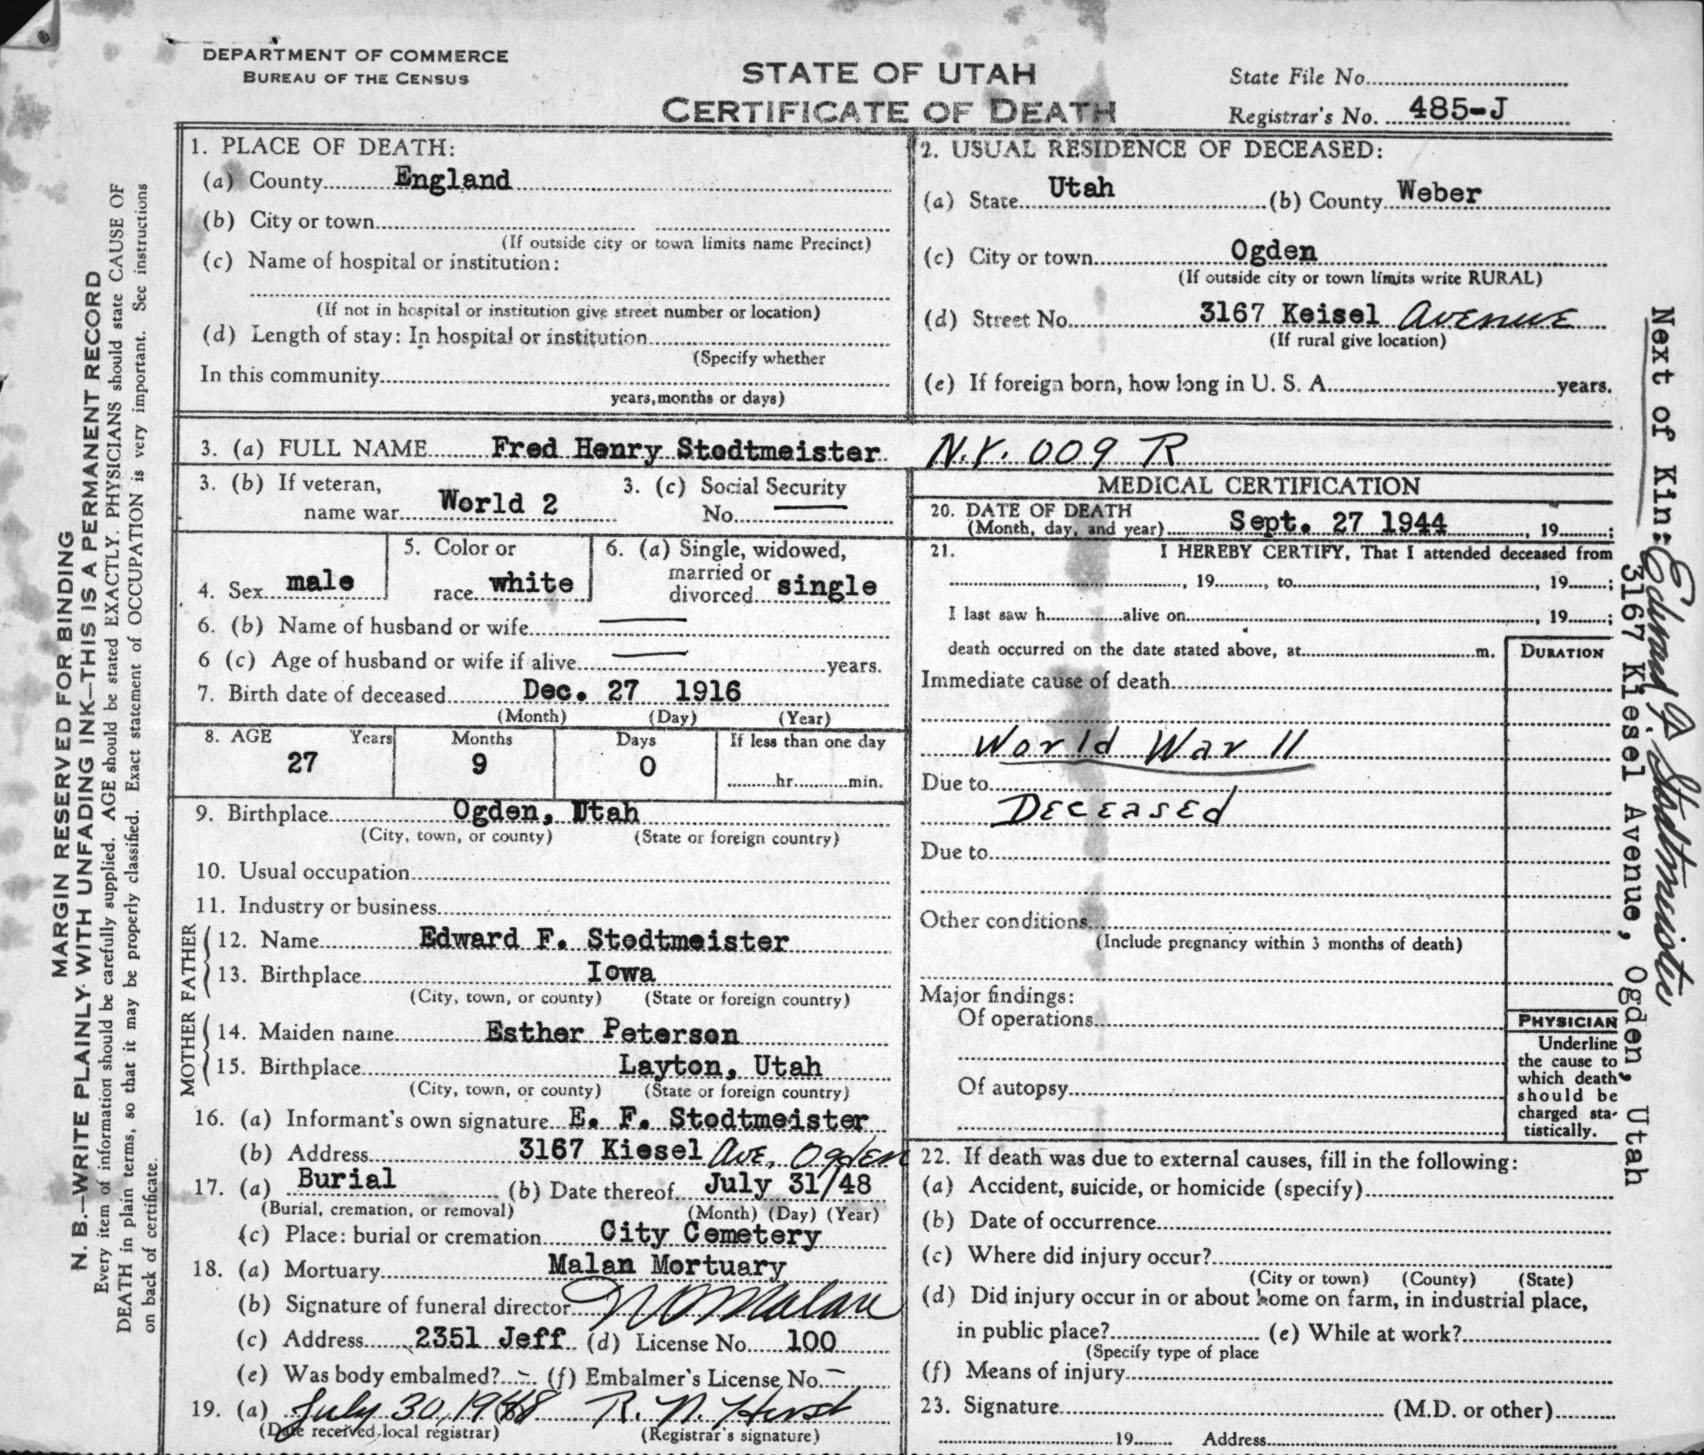 DEPARTMENT OF COMMERCE
BUREAU OF THE CENSUS
STATE OF UTAH
CERTIFICATE OF DEATH
State File No.
Registrar's No. 485-J
MARGIN RESERVED FOR BINDING
N. B.—WRITE PLAINLY WITH UNFADING INK—THIS IS A PERMANENT RECORD
Every item of information should be carefully supplied. AGE should be stated EXACTLY. PHYSICIANS should state CAUSE OF
DEATH in plain terms, so that it may be properly classified. Exact statement of OCCUPATION is very important. See instructions
on back of certificate.
1. PLACE OF DEATH:
(a) County England
(b) City or town
(If outside city or town limits name Precinct)
(c) Name of hospital or institution:
(If not in hospital or institution give street number or location)
(d) Length of stay: In hospital or institution
(Specify whether
In this community
years, months or days)
2. USUAL RESIDENCE OF DECEASED:
(a) State Utah (b) County Weber
(c) City or town Ogden
(If outside city or town limits write RURAL)
(d) Street No. 3167 Keisel Avenue
(If rural give location)
(e) If foreign born, how long in U. S. A. years.
3. (a) FULL NAME Fred Henry Stodtmeister N.Y. 009 R
3. (b) If veteran,
name war World 2
3. (c) Social Security
No.
4. Sex male
5. Color or
race white
6. (a) Single, widowed,
married or
divorced single
6. (b) Name of husband or wife
6 (c) Age of husband or wife if alive years.
7. Birth date of deceased Dec. 27 1916
(Month) (Day) (Year)
8. AGE Years Months Days If less than one day
27 9 0 hr. min.
9. Birthplace Ogden, Utah
(City, town, or county) (State or foreign country)
10. Usual occupation
11. Industry or business
FATHER
12. Name Edward F. Stodtmeister
13. Birthplace Iowa
(City, town, or county) (State or foreign country)
MOTHER
14. Maiden name Esther Peterson
15. Birthplace Layton, Utah
(City, town, or county) (State or foreign country)
16. (a) Informant's own signature E. F. Stodtmeister
(b) Address 3167 Kiesel Ave, Ogden
17. (a) Burial (b) Date thereof July 31/48
(Burial, cremation, or removal) (Month) (Day) (Year)
(c) Place: burial or cremation City Cemetery
18. (a) Mortuary Malan Mortuary
(b) Signature of funeral director Malan
(c) Address 2351 Jeff (d) License No. 100
(e) Was body embalmed? - (f) Embalmer's License No. -
19. (a) July 30, 1948 R. N. Hirst
(Date received local registrar) (Registrar's signature)
MEDICAL CERTIFICATION
20. DATE OF DEATH
(Month, day, and year) Sept. 27 1944, 19 ;
21. I HEREBY CERTIFY, That I attended deceased from
, 19 , to , 19 ;
I last saw h alive on , 19 ;
death occurred on the date stated above, at m.
DURATION
Immediate cause of death
World War II
Due to
Deceased
Due to
Other conditions
(Include pregnancy within 3 months of death)
Major findings:
Of operations
Of autopsy
PHYSICIAN
Underline
the cause to
which death
should be
charged sta-
tistically.
22. If death was due to external causes, fill in the following:
(a) Accident, suicide, or homicide (specify)
(b) Date of occurrence
(c) Where did injury occur?
(City or town) (County) (State)
(d) Did injury occur in or about home on farm, in industrial place,
in public place? (e) While at work?
(Specify type of place
(f) Means of injury
23. Signature (M.D. or other)
19 Address
Next of Kin: Edward F. Stodtmeister
3167 Kiesel Avenue, Ogden, Utah